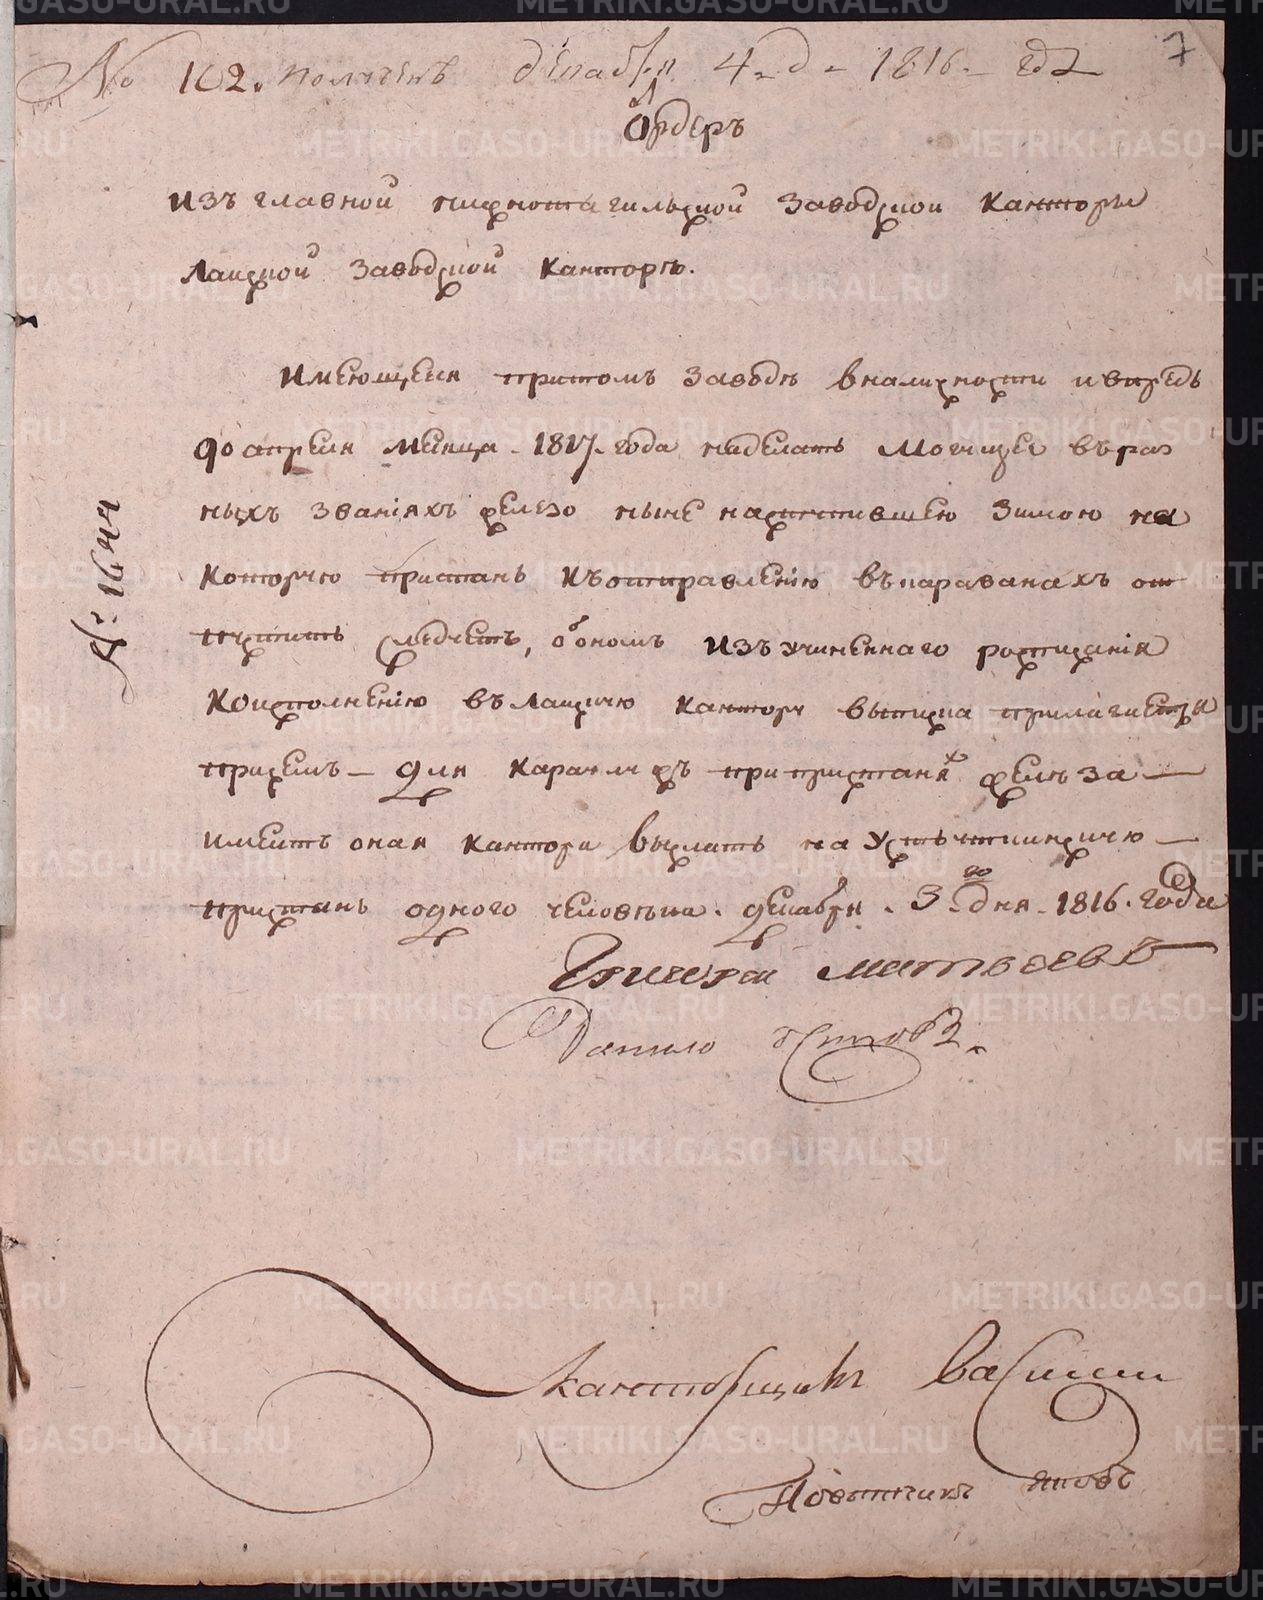 7
№ 102. полученъ декабря 4 д. 1816 года
Ордеръ
изъ главной нижнотагильской заводской канторы
Лайской заводской канторе.
Имеющеяся притомъ заводе вналичности ивпредь
до апреля месяца 1817. года наделать могущее въраз
ныхъ званіяхъ железо ныне наступившею зимою на
которую пристань къотправленію въкараванахъ от
пустить следуетъ, обономъ изъучиненнаго росписанія
коисполненію въЛайскую кантору выписка прилагается
присемъ — для караулу съ припристанях железа —
имеетъ оная кантора выслать на Усть уткинскую —
пристань одного человека. декабря. 3го дня. 1816. года
№: 1644
Григорей Матвеевъ
Данило
канторщикъ Василей
Повытчикъ Яковъ
METRIKI.GASO-URAL.RU